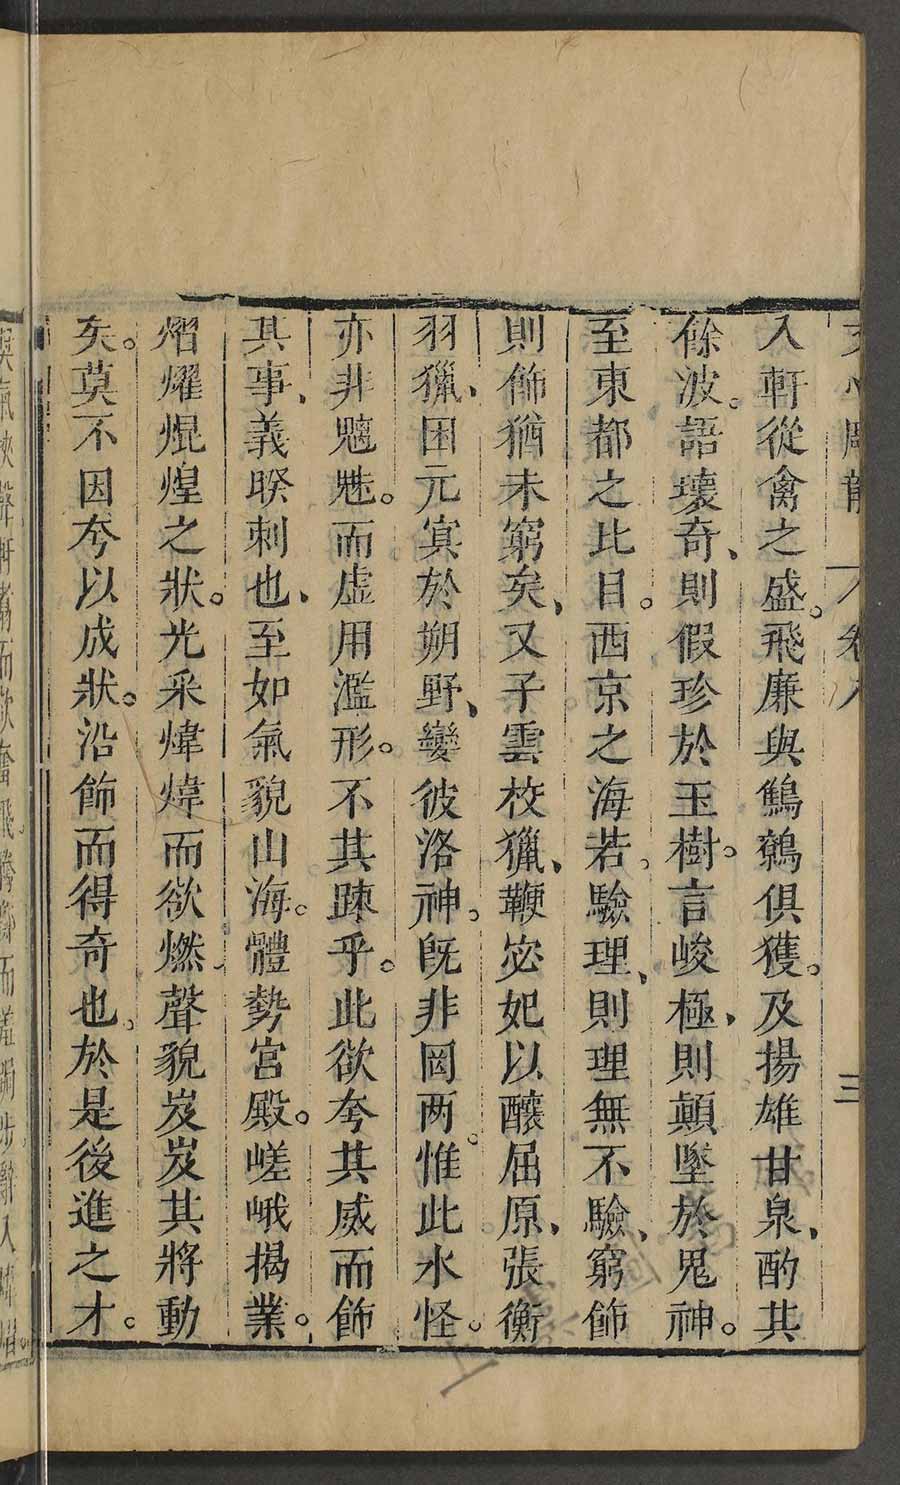 文心雕龍 卷八 三
入軒從禽之盛。飛廉與鷦鷯俱獲。及揚雄甘泉、酌其
餘波。語瓌奇、則假珍於玉樹。言峻極、則顛墜於鬼神。
至東都之比目。西京之海若。驗理、則理無不驗、窮飾
則飾猶未窮矣、又子雲校獵、鞭宓妃以釀屈原、張衡
羽獵、困元冥於朔野、孌彼洛神。旣非罔两。惟此水怪。
亦非魑魅。而虛用濫形。不其踈乎。此欲夸其威而飾
其事、義暌刺也、至如氣貌山海。體勢宮殿。嵯峨揭業。
熠燿焜煌之狀。光采煒煒而欲燃、聲貌岌岌其將動
矣。莫不因夸以成狀。沿飾而得奇也。於是後進之才。